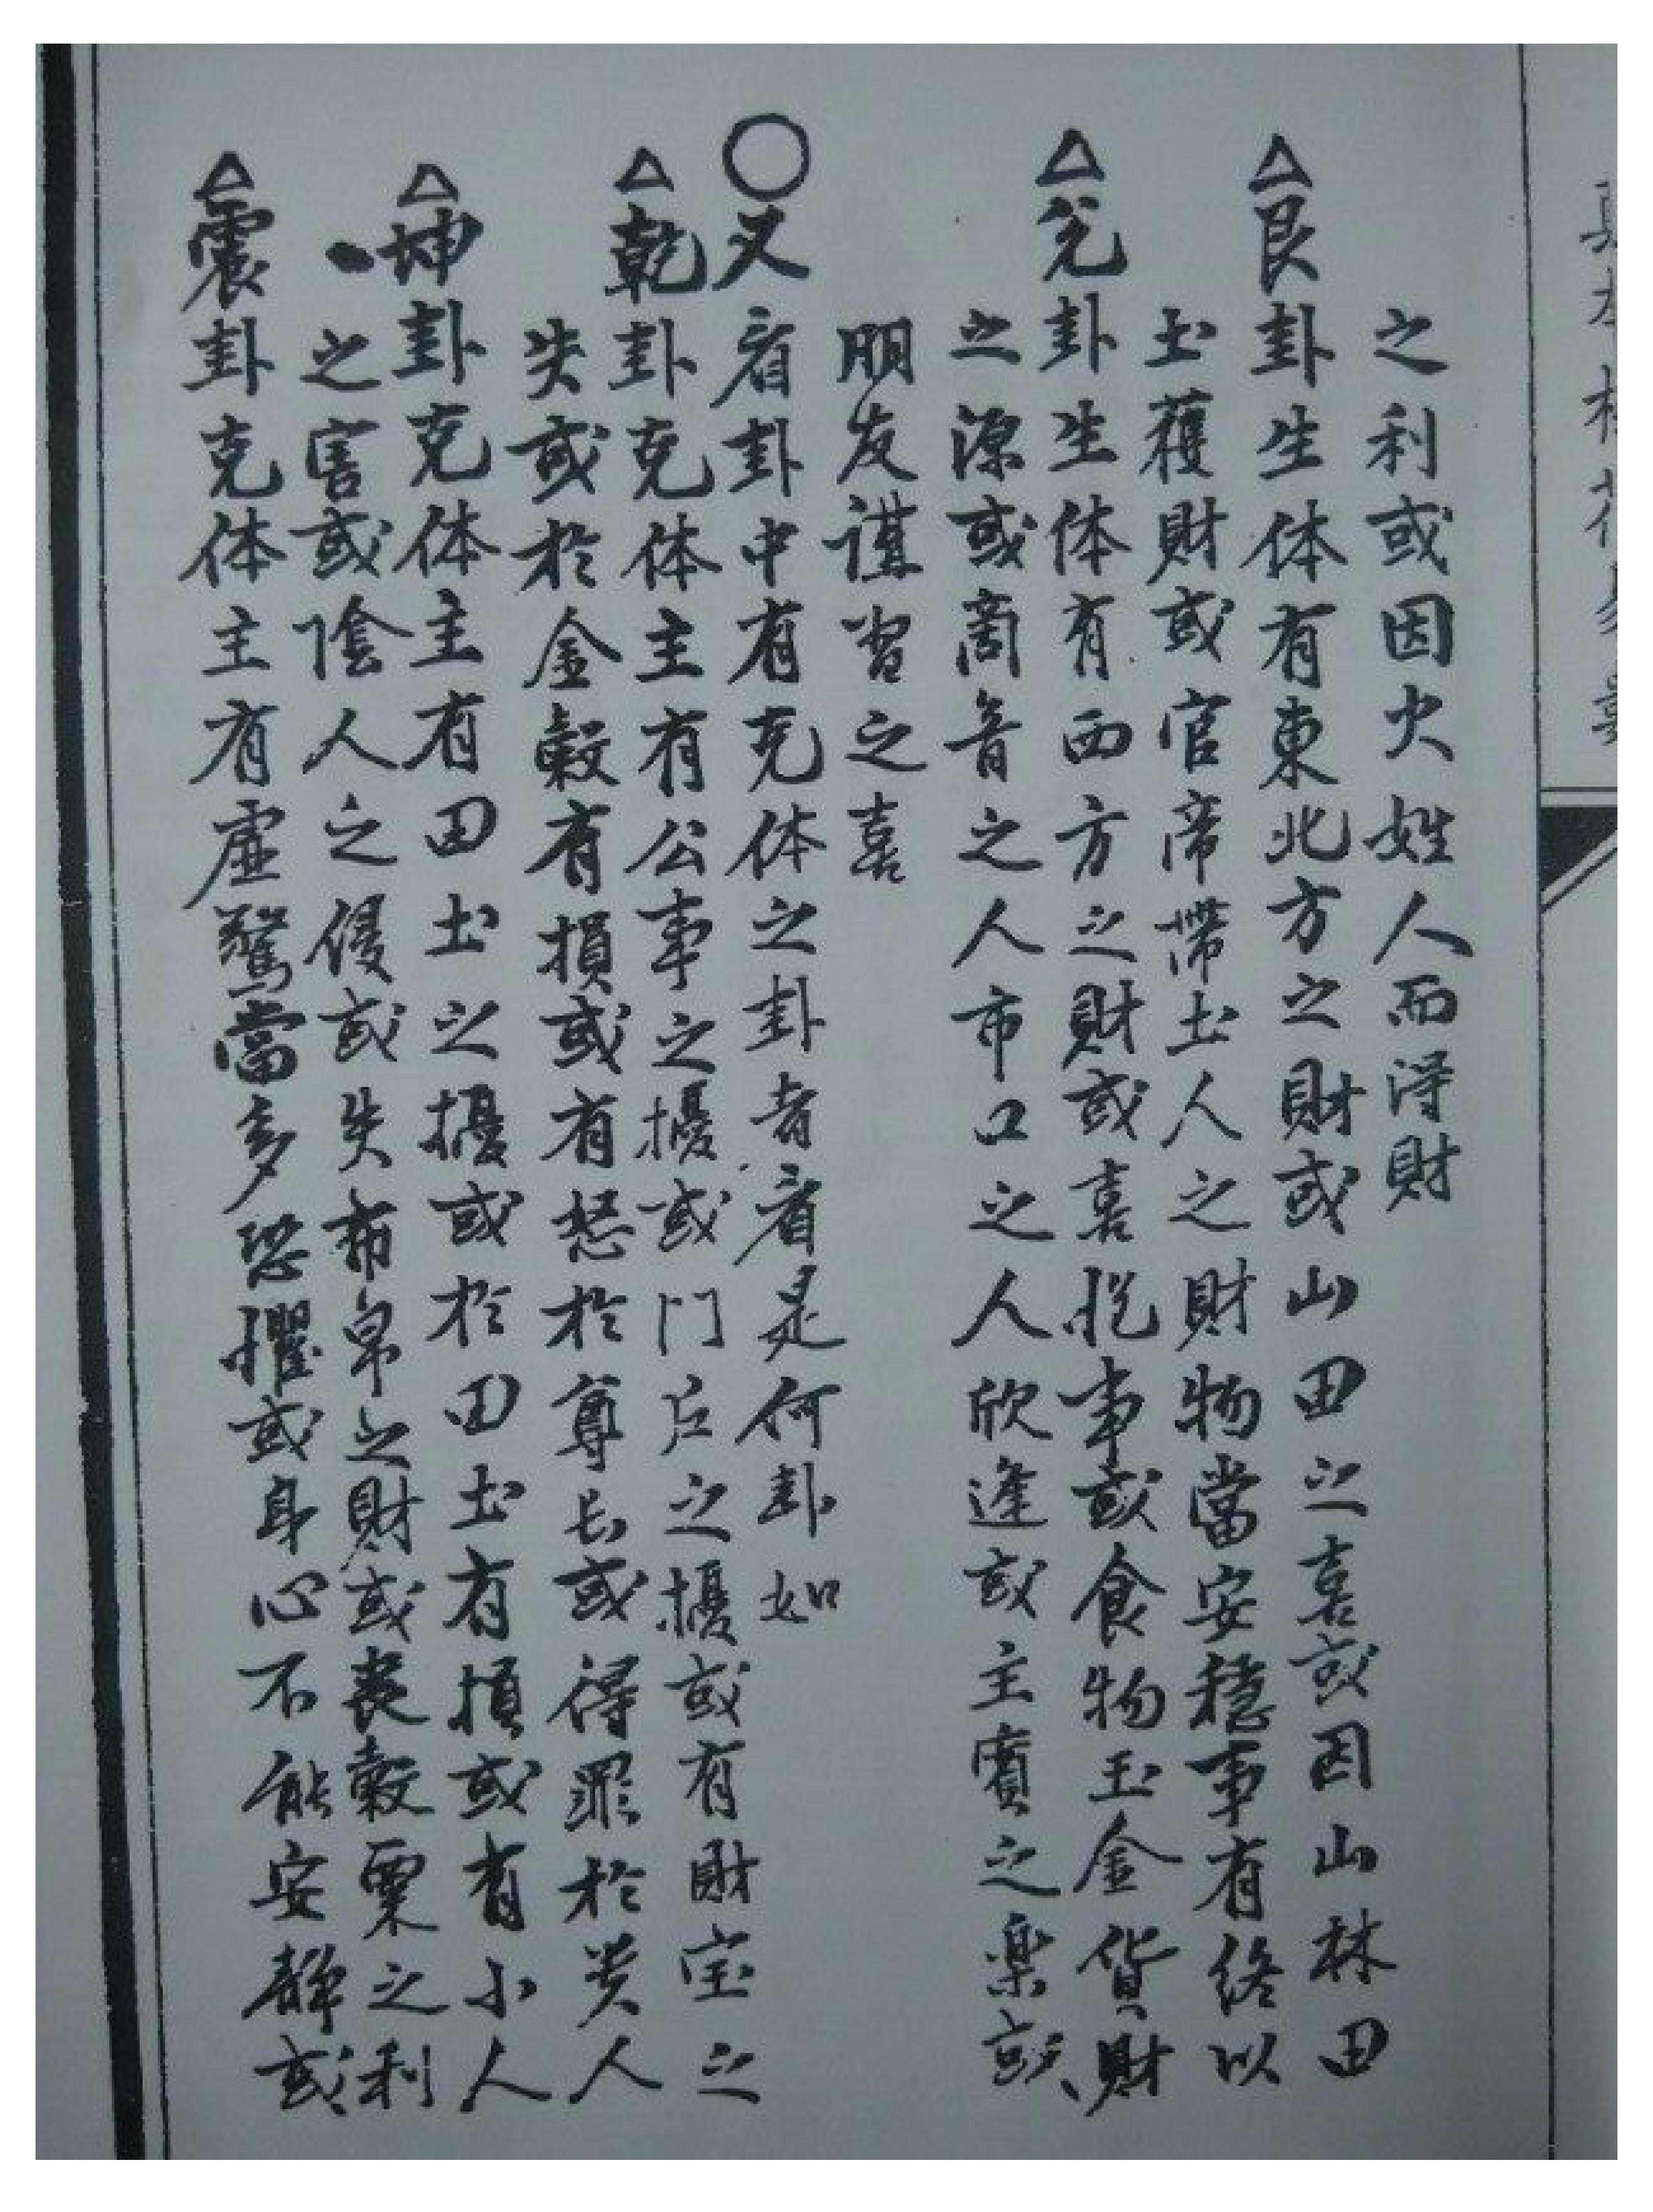 之利或因火姓人而得財
△艮卦生体有東北方之財或山田之喜或因山林田
土獲財或官帝帶土人之財物當安穩事有终以
△兑卦生体有西方之財或喜悦事或食物玉金貨財
之源或商音之人市口之人欣逢或主賓之楽或
朋友谋習之喜
○又看卦中有克体之卦者看是何卦如
△乾卦克体主有公事之擾或门户之擾或有財宝之
失或於金穀有損或有怒於尊长或得罪於贵人
△坤卦克体主有田土之擾或於田土有損或有小人
之害或陰人之侵或失布帛之財或喪穀粟之利
△震卦克体主有虚驚當多恐懼或身心不能安静或